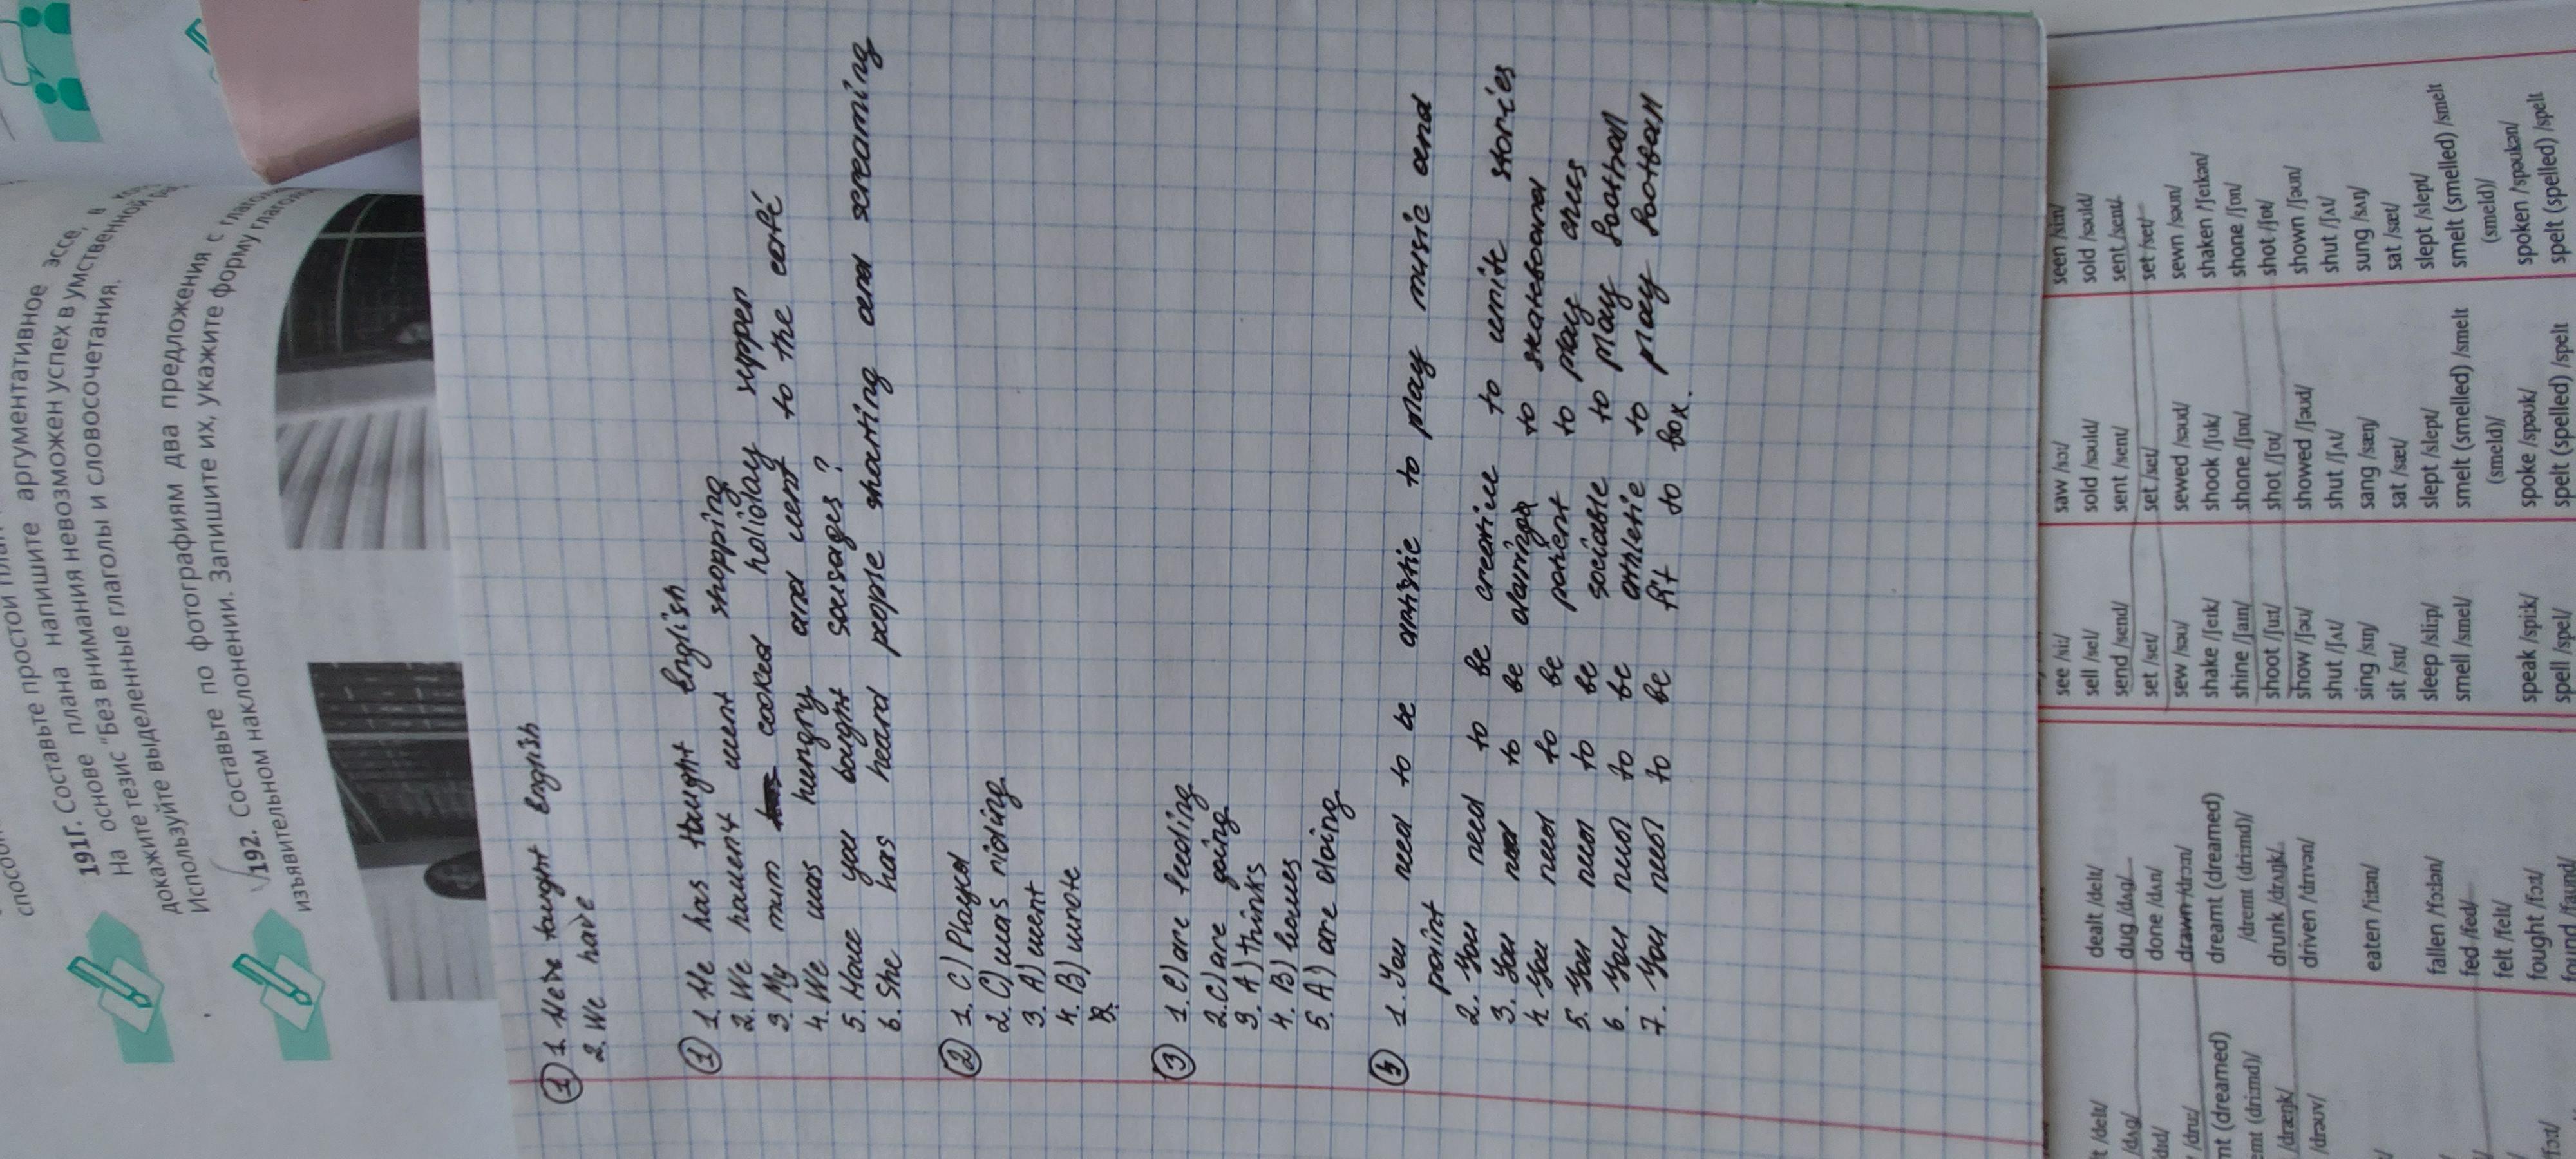 191Г. Составьте простой план
на основе плана напишите аргументативное эссе, в
На тезис "Без внимания невозможен успех в умственной
докажите выделенные глаголы и словосочетания.
Используйте
192. Составьте по фотографиям два предложения с
изъявительном наклонении. Запишите их, укажите форму
① 1. He's taught English
2. We have
① 1. He has taught English
2. We haven't went shopping
3. My mum cooked holiday supper
4. We was hungry and went to the café
5. Have you bought sausages?
6. She has heard people sharting and screaming
② 1. C) Played
2. C) was riding
3. A) went
4. B) wrote
③ 1. C) are feeding
2. C) are going
3. A) thinks
4. B) leaves
5. A) are doing
⑤ 1. You need to be artistic to play music and
paint
2. You need to be creative to write stories
3. You need to be daring to skateboard
4. You need to be patient to play ches
5. You need to be sociable to play football
6. You need to be athletic to play football
7. You need to be fit to box.
see /siː/ saw /sɔː/ seen /siːn/
sell /sel/ sold /səʊld/ sold /səʊld/
send /send/ sent /sent/ sent /sent/
set /set/ set /set/ set /set/
sew /səʊ/ sewed /səʊd/ sewn /səʊn/
shake /ʃeɪk/ shook /ʃʊk/ shaken /ʃeɪkən/
shine /ʃaɪn/ shone /ʃɒn/ shone /ʃɒn/
shoot /ʃuːt/ shot /ʃɒt/ shot /ʃɒt/
show /ʃəʊ/ showed /ʃəʊd/ shown /ʃəʊn/
shut /ʃʌt/ shut /ʃʌt/ shut /ʃʌt/
sing /sɪŋ/ sang /sæŋ/ sung /sʌŋ/
sit /sɪt/ sat /sæt/ sat /sæt/
sleep /sliːp/ slept /slept/ slept /slept/
smell /smel/ smelt (smelled) /smelt smelt (smelled) /smelt
(smeld)/ (smeld)/
speak /spiːk/ spoke /spəʊk/ spoken /spəʊkən/
spell /spel/ spelt (spelled) /spelt spelt (spelled) /spelt
dealt /delt/
dug /dʌg/
done /dʌn/
drawn /drɔːn/
dreamt (dreamed)
/dremt (driːmd)/
drunk /drʌŋk/
driven /drɪvən/
eaten /iːtən/
fallen /fɔːlən/
fed /fed/
felt /felt/
fought /fɔːt/